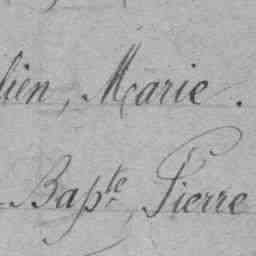 lien, Marie.
Bapte, Pierre